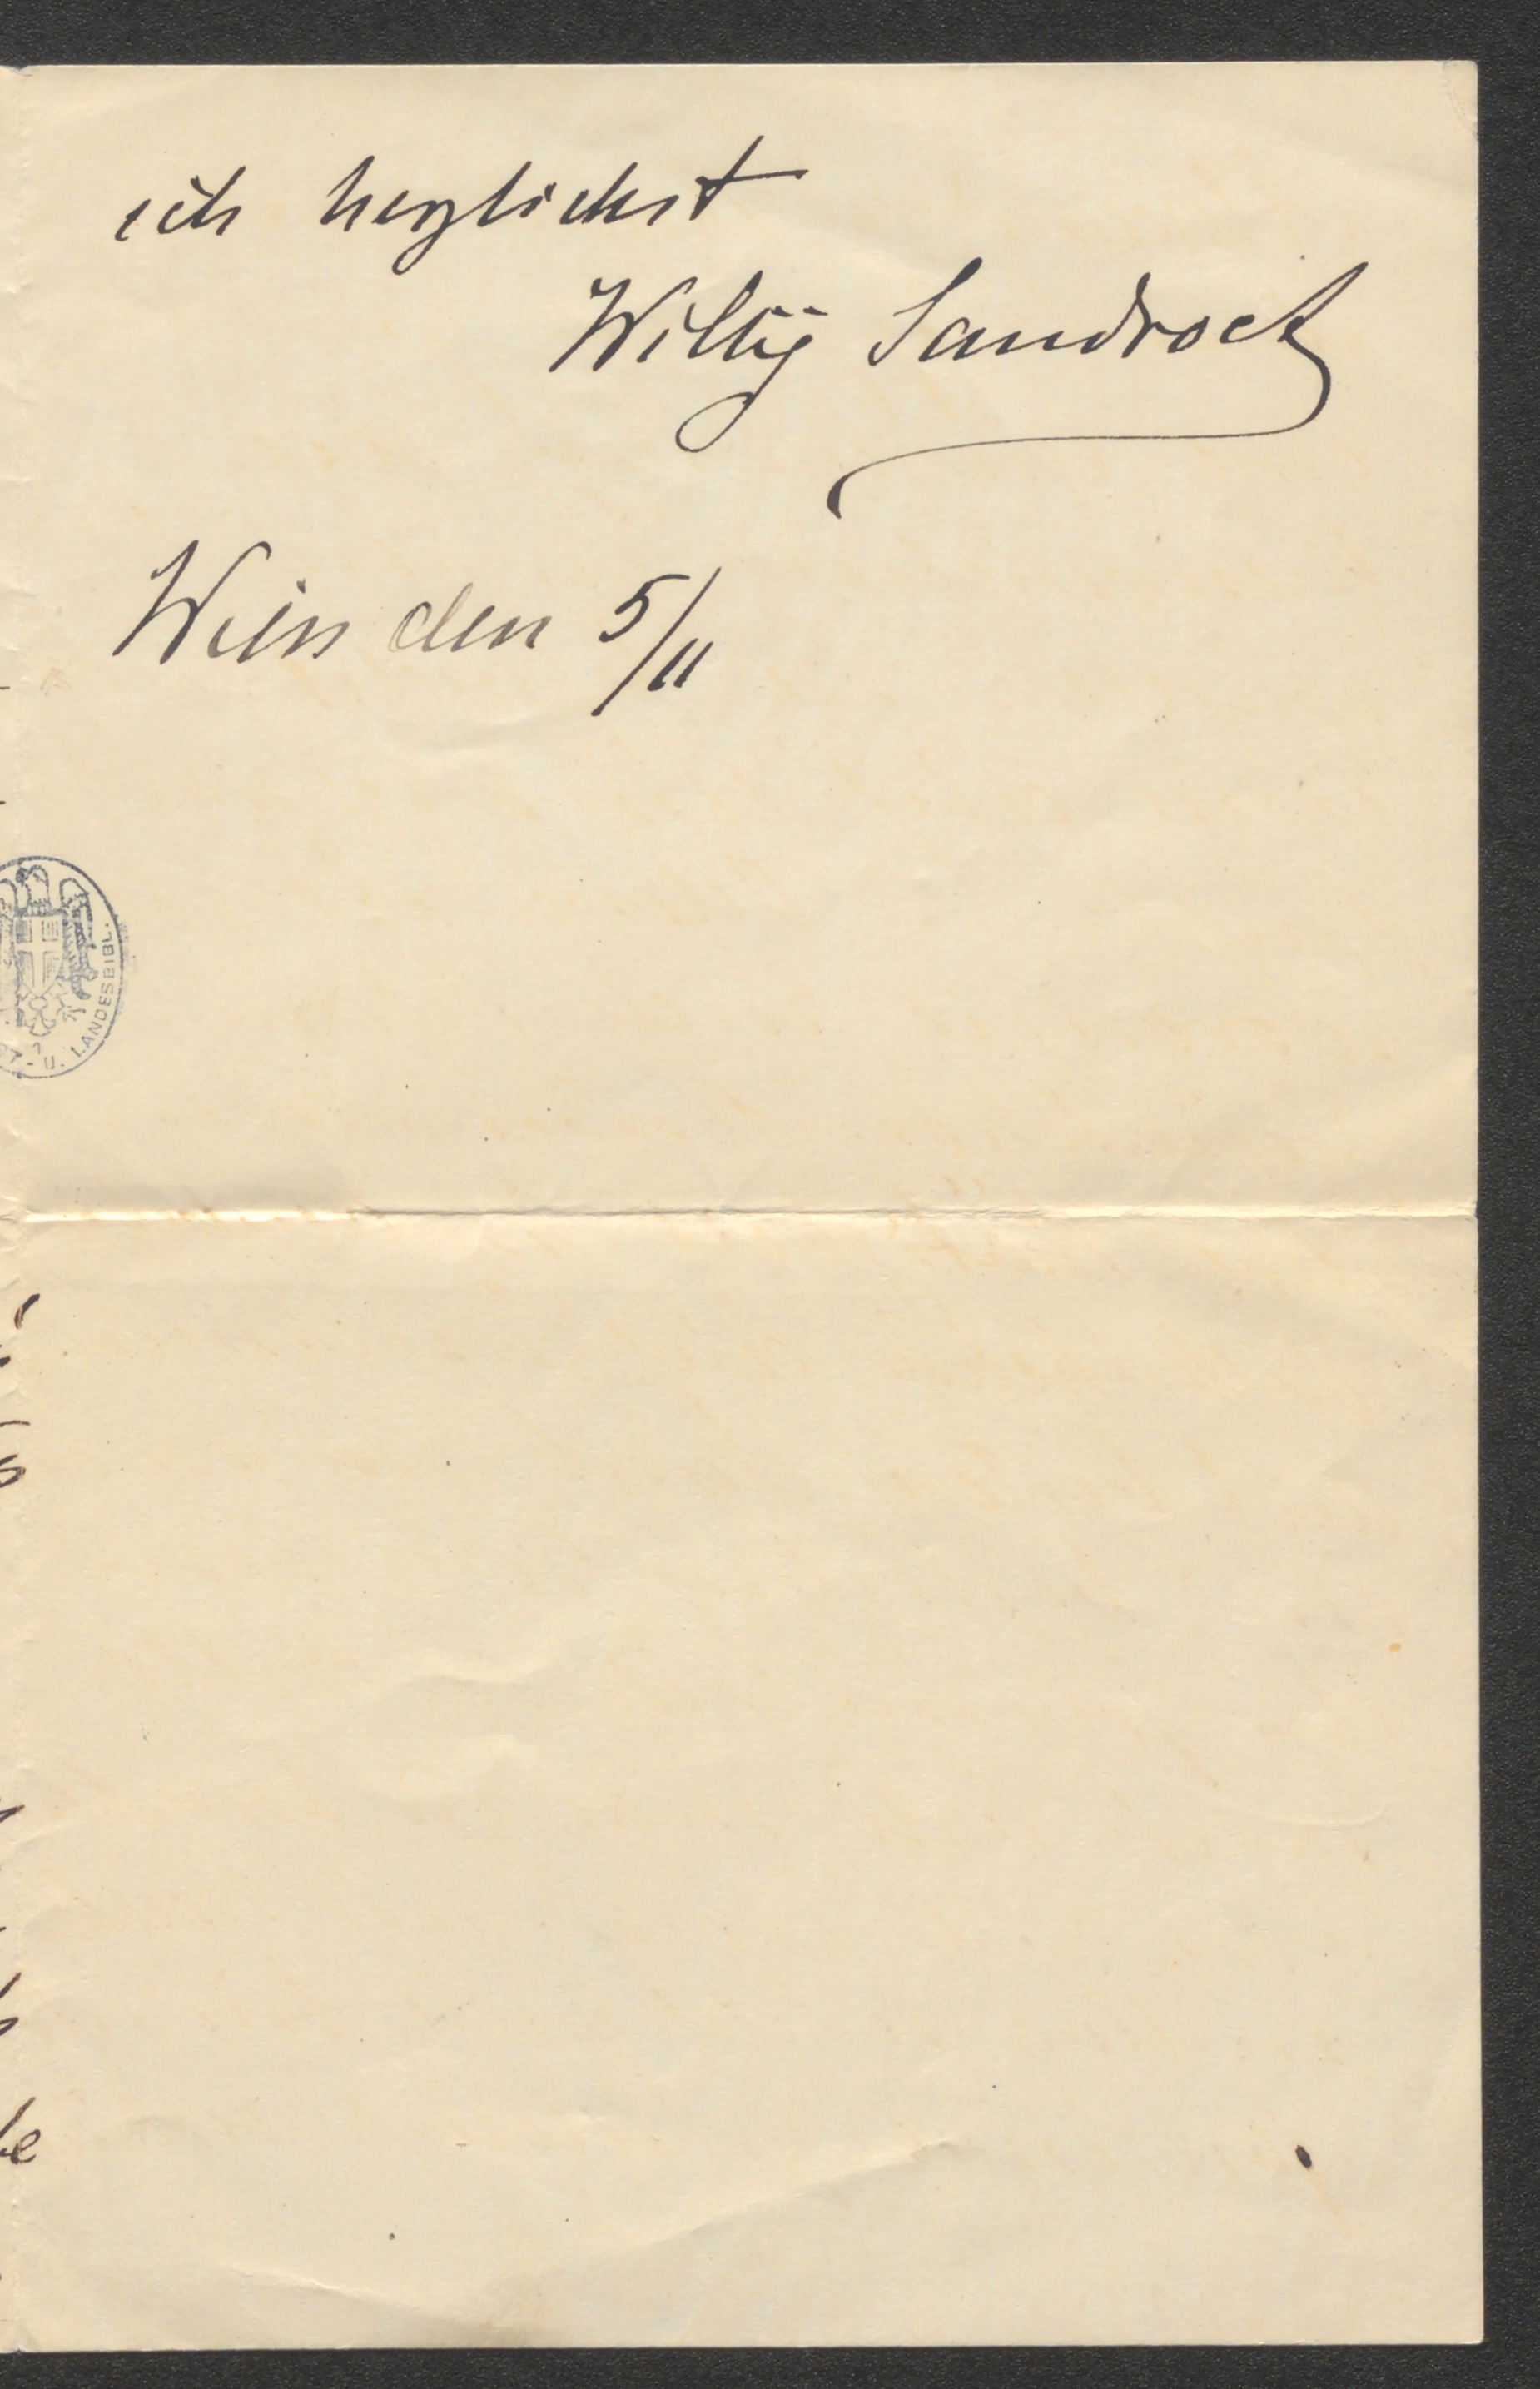 ich herzlichst
Willÿ Sandrock
Wien den 5/11
U. LANDESBIBL.